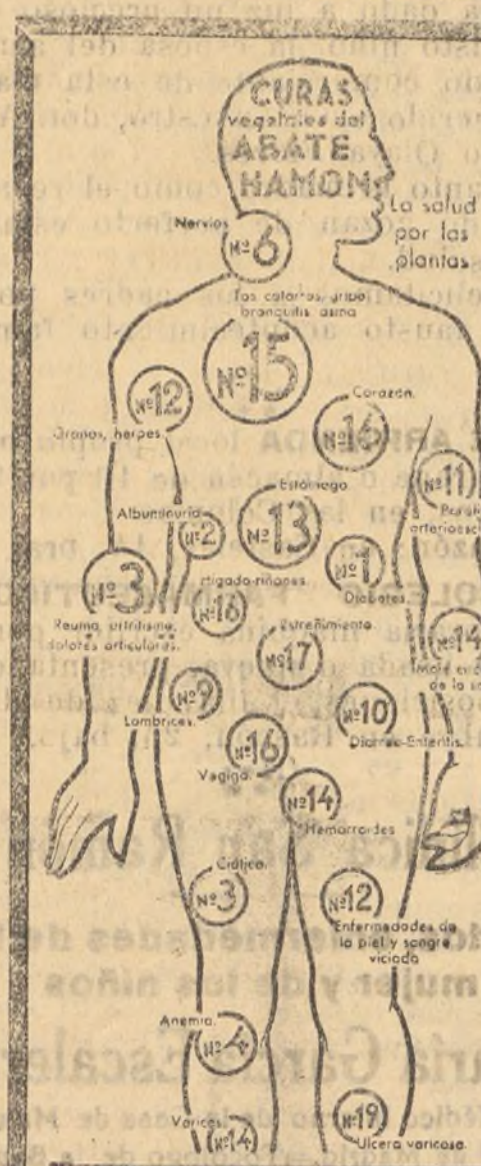 CURAS
vegetales del
ABATE
HAMON
La salud
por las
plantas
Nervios
Nº 6
Tos catarros, gripe
bronquitis asma
Nº 15
Nº 12
Granos, herpes.
Corazón.
Nº 16
Nº 11
Estómago.
Nº 13
Albuminuria
Nº 2
Nº 1
Diabetes.
Nº 3
Reuma, artritismo,
dolores articulares.
Hígado-riñones.
Nº 16
Estreñimiento
Nº 17
Nº 14
de la
Nº 9
Lombrices.
Nº 10
Diarrea-Enteritis.
Nº 16
Vegiga
Nº 14
Hemorroides
Ciática.
Nº 3
Nº 12
Enfermedades de
la piel y sangre
viciada
Anemia.
Nº 4
Varices.
Nº 14
Nº 19
Ulcera varicosa.